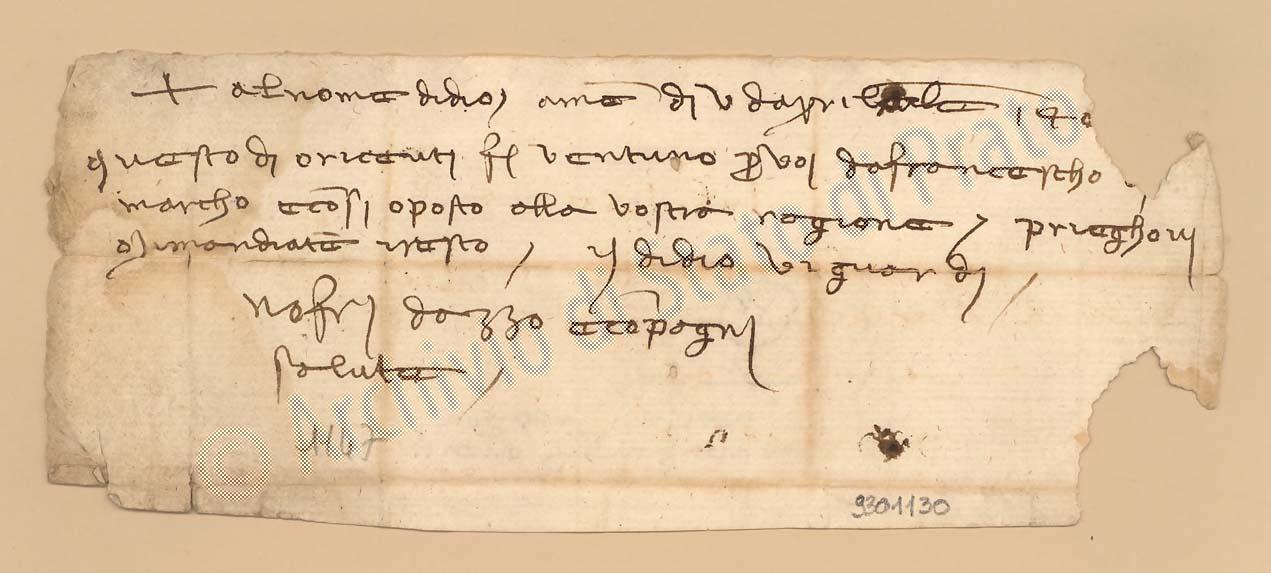 + al nome didio, ame di v daprile
questo di oricevti fl ventuno p voi dafrancescho
marcho econsi oposto alla vostra ragione, prieghovi
mimandiate iresto, idio vi guardi,
Nofri dazzo echopagni
salute,
1147
9301130
© Archivio di Stato di Prato